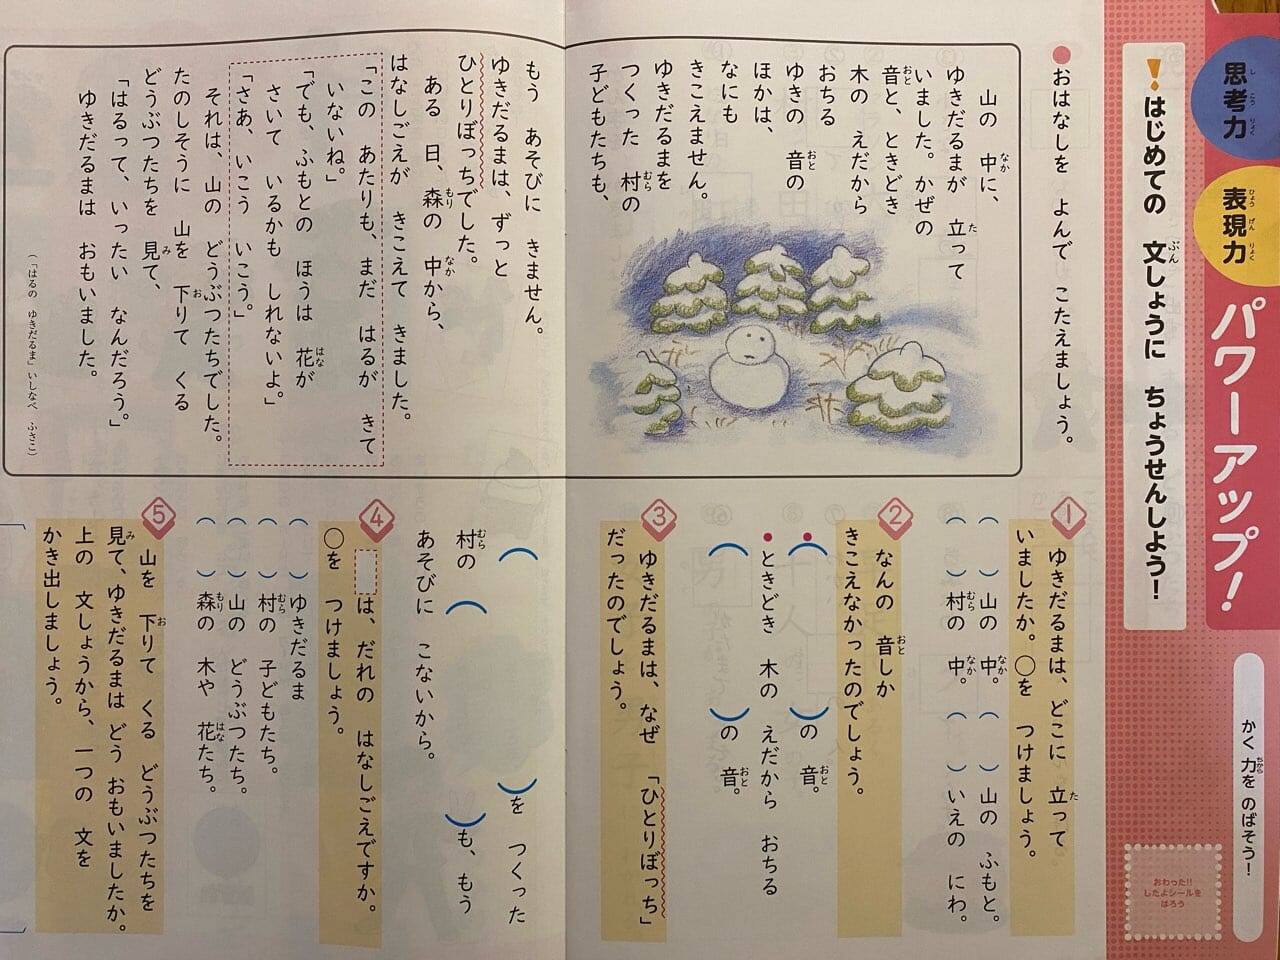 思考力
表現力
パワーアップ!
かく 力を のばそう!
! はじめての 文しょうに ちょうせんしよう!
おわった!!
したよシールを
はろう
● おはなしを よんで こたえましょう。
山の 中に、
ゆきだるまが 立って
いました。かぜの
音と、ときどき
木の えだから
おちる
ゆきの 音の
ほかは、
なにも
きこえません。
ゆきだるまを
つくった 村の
子どもたちも、
もう あそびに きません。
ゆきだるまは、ずっと
ひとりぼっちでした。
ある 日、森の 中から、
はなしごえが きこえて きました。
「この あたりも、まだ はるが きて
いないね。」
「でも、ふもとの ほうは 花が
さいて いるかも しれないよ。」
「さあ、いこう いこう。」
それは、山の どうぶつたちでした。
たのしそうに 山を 下りて くる
どうぶつたちを 見て、
「はるって、いったい なんだろう。」
ゆきだるまは おもいました。
(「はるの ゆきだるま」いしなべ ふさこ)
1 ゆきだるまは、どこに 立って
いましたか。○を つけましょう。
( )山の 中。 ( )山の ふもと。
( )村の 中。 ( )いえの にわ。
2 なんの 音しか
きこえなかったのでしょう。
●( )の 音。
●ときどき 木の えだから おちる
( )の 音。
3 ゆきだるまは、なぜ 「ひとりぼっち」
だったのでしょう。
( )を つくった
村の ( )も、もう
あそびに こないから。
4 は、だれの はなしごえですか。
○を つけましょう。
( )ゆきだるま
( )村の 子どもたち。
( )山の どうぶつたち。
( )森の 木や 花たち。
5 山を 下りて くる どうぶつたちを
見て、ゆきだるまは どう おもいましたか。
上の 文しょうから、一つの 文を
かき出しましょう。